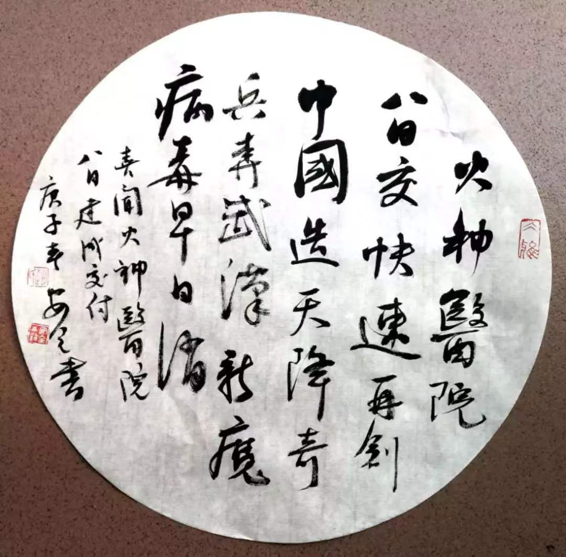 火神醫院
八日交快速再創
中國造天降奇
兵奔武漢新魔
病毒早日消
喜聞火神醫院
八日建成交付
庚子年 書